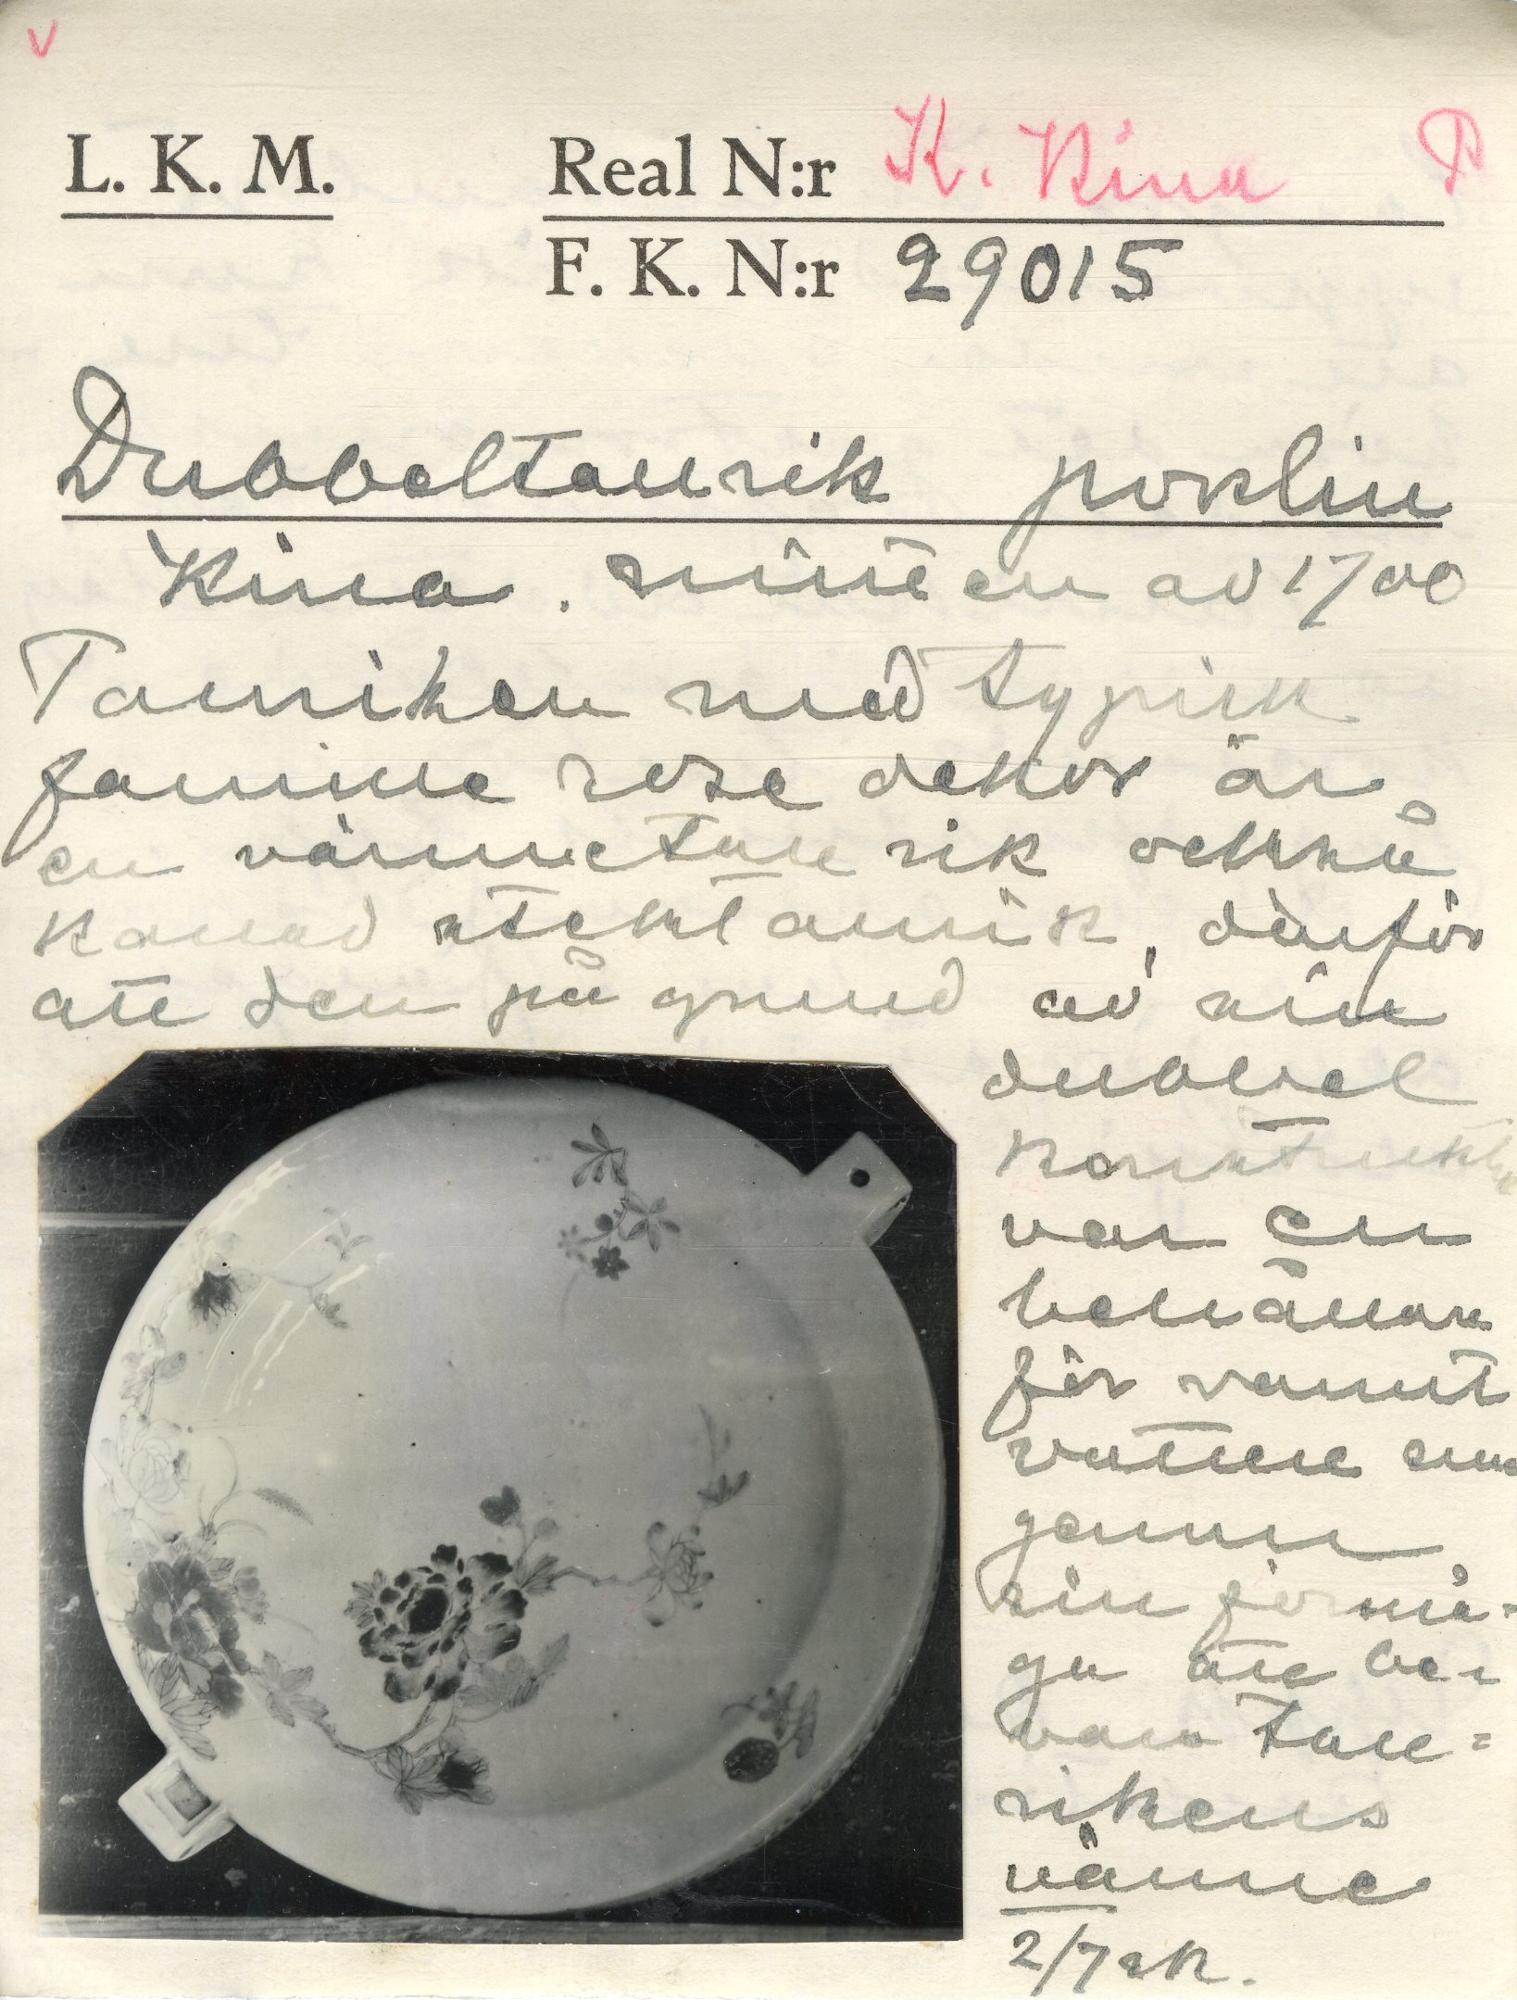 v
L. K. M.
Real N:r K. Kina P
F. K. N:r 29015
Dubbeltallrik porslin
Kina. mitten av 1700
Tallriken med typisk
famille rose dekor är
en värmetallrik också
kallad stektallrik, därför
att den på grund av sin
dubbel
konstruktion
var en
behållare
för varmt
vatten
genom
sin förmå-
ga att be-
vara tall=
rikens
värme
2/7 sk.